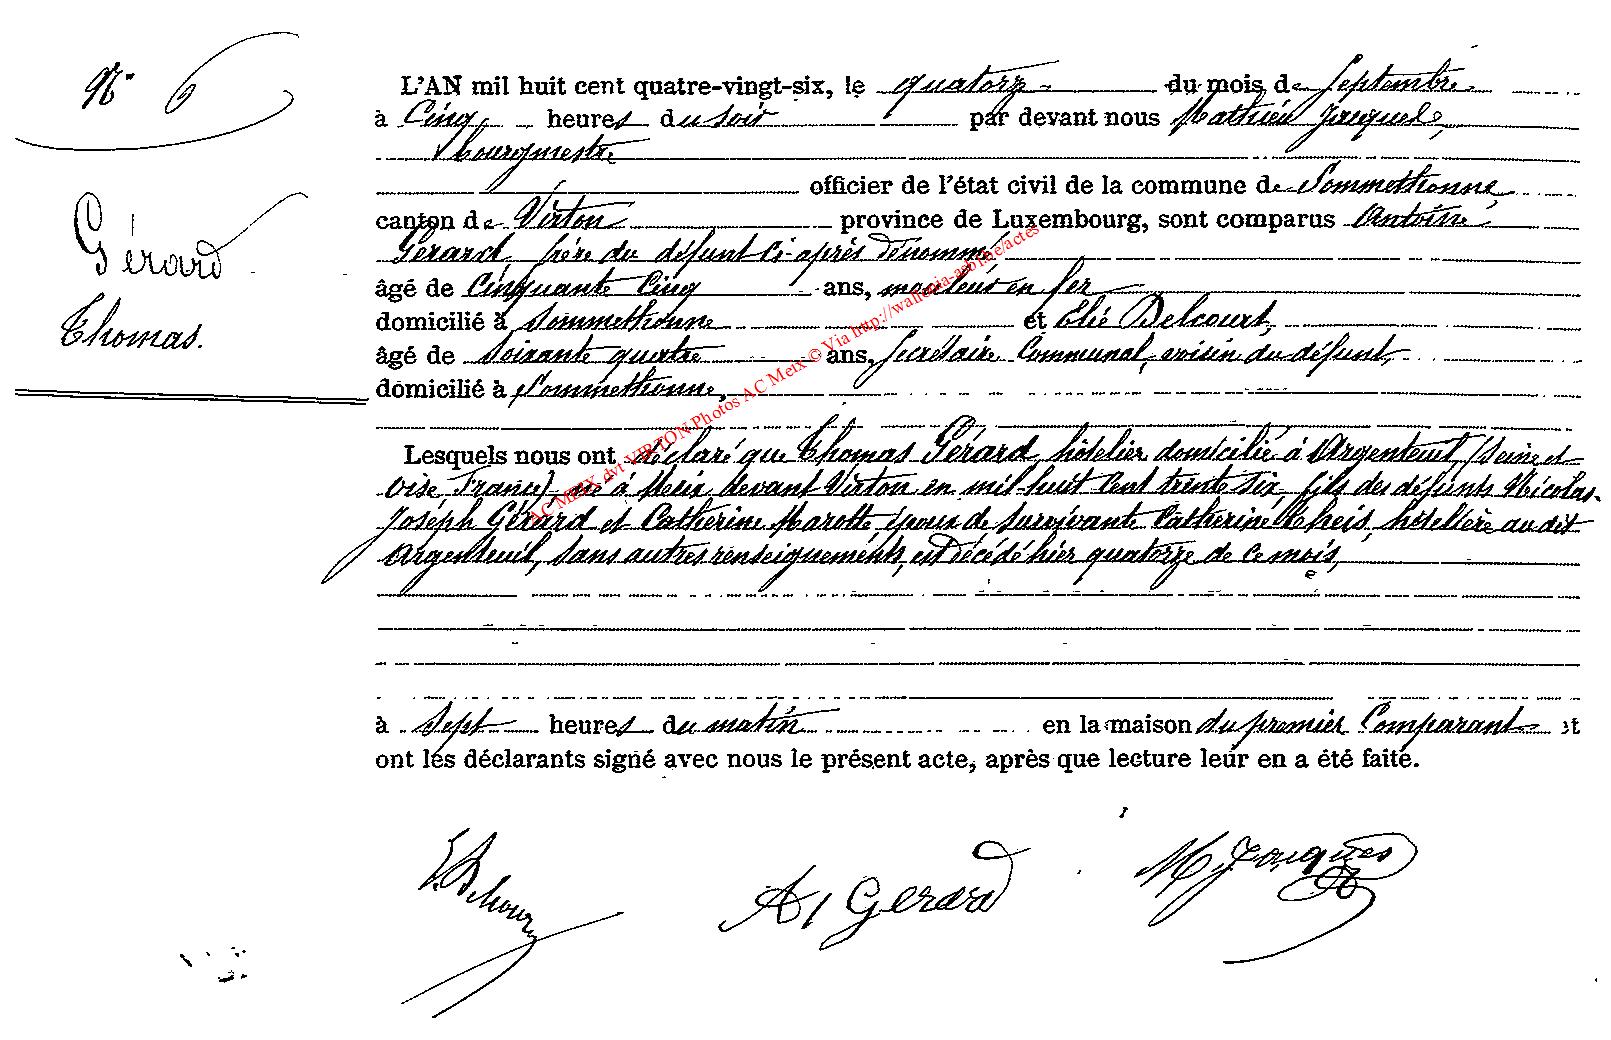 N° 6
Gérard
Thomas.
L'AN mil huit cent quatre-vingt-six, le quatorze du mois de Septembre
à Cinq heures du soir par devant nous Mathieu Jacques,
bourgmestre
officier de l'état civil de la commune de Sommethonne,
canton de Virton province de Luxembourg, sont comparus Antoine
Gérard, frère du défunt ci-après dénommé,
âgé de Cinquante Cinq ans, mouleur en fer
domicilié à Sommethonne et Elie Delcourt,
âgé de Soixante quatre ans, Secrétaire Communal, voisin du défunt,
domicilié à Sommethonne,
Lesquels nous ont déclaré que Thomas Gérard, hôtelier domicilié à Argenteuil (Seine et
Oise, France) né à Meix devant Virton en mil-huit Cent trente six, fils des défunts Nicolas-
Joseph Gérard et Catherine Marotte, époux de survivante Catherine Theis, hôtelière au dit
Argenteuil, sans autres renseignements, est décédé hier quatorze de ce mois,
à Sept heures du matin en la maison du premier Comparant et
ont les déclarants signé avec nous le présent acte, après que lecture leur en a été faite.
A Gerard
M Jacques
AC MEIX dvt VIRTON Photos AC Meix © Via http://wallonia-asbl.be/actes